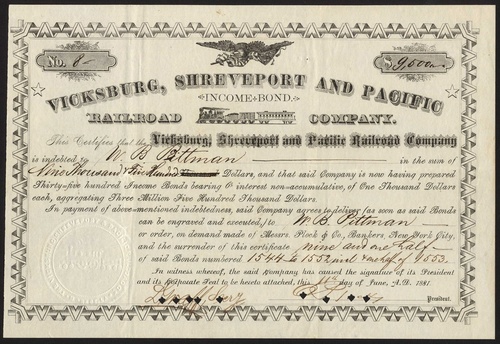 No. 8
$9500
VICKSBURG, SHREVEPORT AND PACIFIC
INCOME BOND.
RAILROAD COMPANY.
This Certifies that the Vicksburg, Shreveport and Pacific Railroad Company
is indebted to W. B. Pittman in the sum of
Nine Thousand & Five Hundred Dollars, and that said Company is now having prepared
Thirty-five hundred Income Bonds bearing 6% interest non-accumulative, of One Thousand Dollars
each, aggregating Three Million Five Hundred Thousand Dollars.
In payment of above-mentioned indebtedness, said Company agrees to deliver (as soon as said Bonds
can be engraved and executed,) to W. B. Pittman
or order, on demand made of Messrs. Plock & Co., Bankers, New York City,
and the surrender of this certificate nine and one half
of said Bonds numbered 1544 to 1552 incl and one half of 9553.
In witness whereof, the said Company has caused the signature of its President
and its Corporate Seal to be hereto attached, this day of June, A.D. 1881.
President.